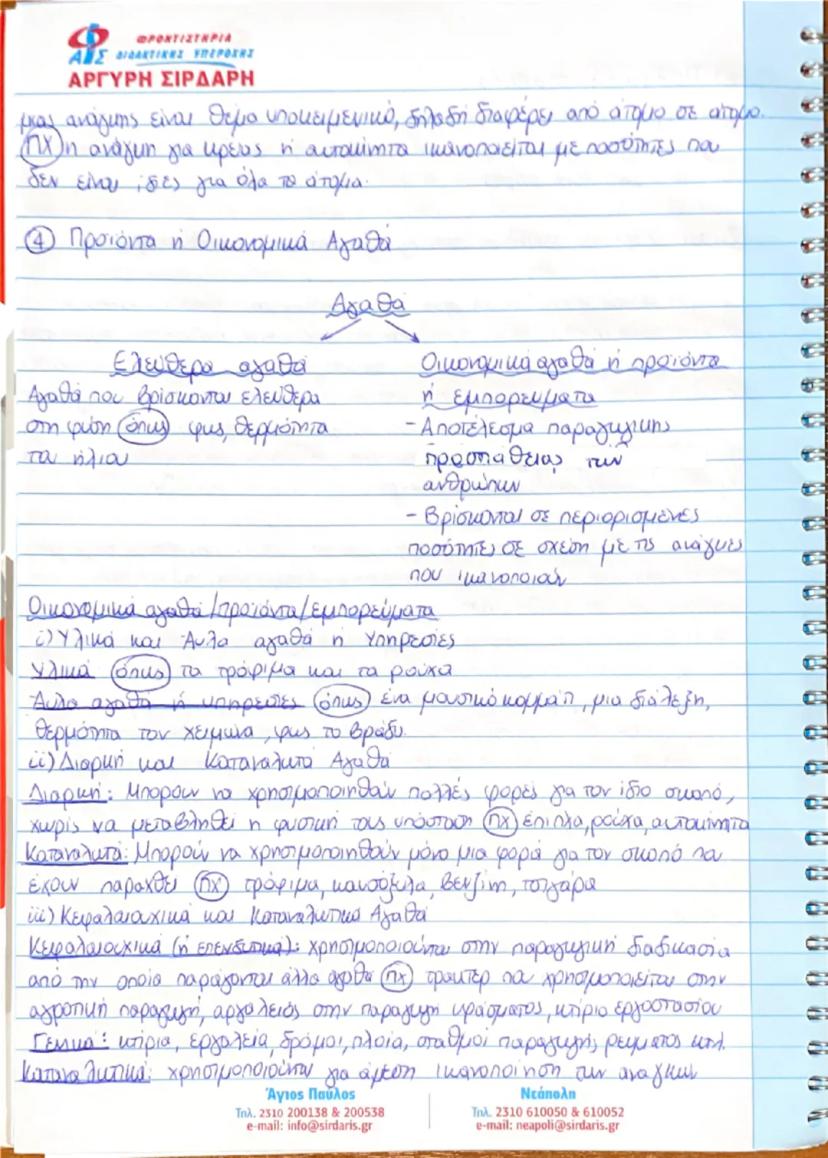 ΦΡΟΝΤΙΣΤΗΡΙΑ
ΔΙΔΑΚΤΙΚΗΣ ΥΠΕΡΟΧΗΣ
ΑΡΓΥΡΗ ΣΙΡΔΑΡΗ
μιας ανάγκης είναι θέμα υποκειμενικό, δηλαδή διαφέρει από άτομο σε άτομο.
πχ η ανάγκη για κρέας ή αυτοκίνητα ικανοποιείται με ποσότητες που
δεν είναι ίδιες για όλα τα άτομα.
④ Προϊόντα ή Οικονομικά Αγαθά
Αγαθά
Ελεύθερα αγαθά
Αγαθά που βρίσκονται ελεύθερα
στη φύση όπως φως, θερμότητα
του ήλιου
Οικονομικά αγαθά ή προϊόντα
ή εμπορεύματα
- Αποτέλεσμα παραγωγικης
προσπάθειας των
ανθρώπων
- Βρίσκονται σε περιορισμένες
ποσότητες σε σχέση με τις ανάγκες
που ικανοποιούν
Οικονομικά αγαθά/προϊόντα/εμπορεύματα
i) Υλικά και Άυλα αγαθά ή Υπηρεσίες
Υλικά όπως τα τρόφιμα και τα ρούχα
Άυλα αγαθά ή υπηρεσίες όπως ένα μουσικό κομμάτι, μια διάλεξη,
θερμότητα τον χειμώνα, φως το βράδυ.
ii) Διαρκή και Καταναλωτά Αγαθά
Διαρκή: Μπορούν να χρησιμοποιηθούν πολλές φορές για τον ίδιο σκοπό,
χωρίς να μεταβληθεί η φυσική τους υπόσταση πχ έπιπλα, ρούχα, αυτοκίνητα
Καταναλωτά: Μπορούν να χρησιμοποιηθούν μόνο μια φορά για τον σκοπό που
έχουν παραχθεί πχ τρόφιμα, καυσόξυλα, βενζίνη, τσιγάρα
iii) Κεφαλαιουχικά και Καταναλωτικά Αγαθά
Κεφαλαιουχικά (ή επενδυτικά): χρησιμοποιούνται στην παραγωγική διαδικασία
από την οποία παράγονται άλλα αγαθά πχ τρακτερ που χρησιμοποιείται στην
αγροτική παραγωγή, αργαλειός στην παραγωγή υφάσματος, κτίριο εργοστασίου
Γενικά: κτίρια, εργαλεία, δρόμοι, πλοία, σταθμοί παραγωγής ρεύματος κτλ.
Καταναλωτικά: χρησιμοποιούνται για άμεση ικανοποίηση των αναγκών
Άγιος Παύλος
Τηλ. 2310 200138 & 200538
e-mail: info@sirdaris.gr
Νεάπολη
Τηλ. 2310 610050 & 610052
e-mail: neapoli@sirdaris.gr